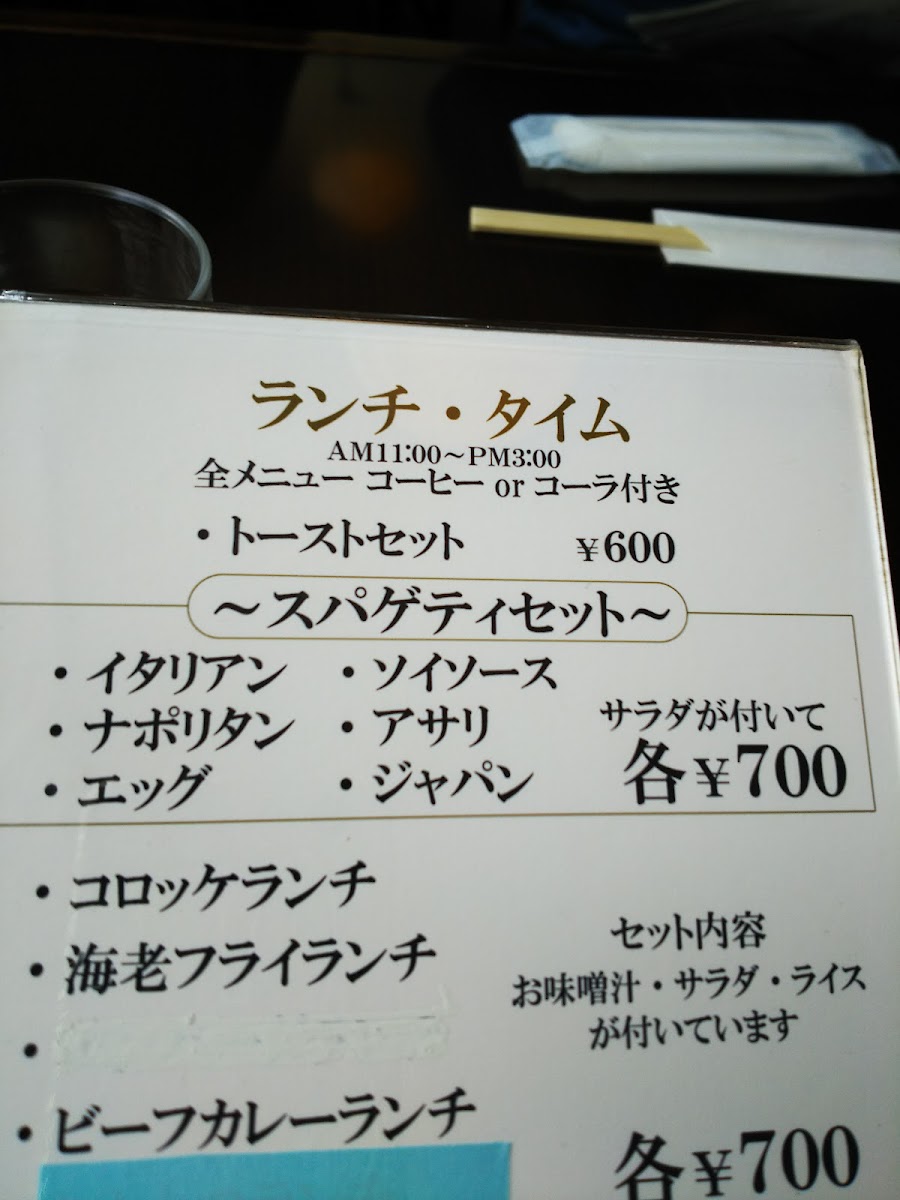 ランチ・タイム
AM11:00～PM3:00
全メニュー コーヒー or コーラ付き
・トーストセット ￥600
～スパゲティセット～
・イタリアン ・ソイソース
・ナポリタン ・アサリ
・エッグ ・ジャパン
サラダが付いて
各￥700
・コロッケランチ
・海老フライランチ
・
・ビーフカレーランチ
セット内容
お味噌汁・サラダ・ライス
が付いています
各￥700